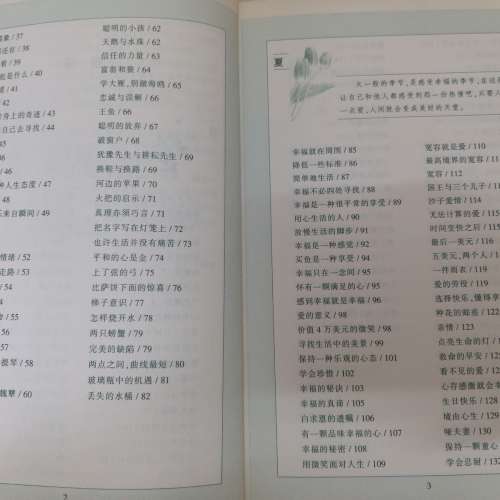 / 37
/ 38
/ 39
是什么 / 40
/ 41
身上的奇迹 / 43
自己去寻找 / 44
/ 45
/ 46
种人生态度 / 47
/ 48
来自瞬间 / 49
/ 52
走路 / 53
/ 54
/ 55
/ 56
/ 57
提琴 / 58
/ 59
魏颗 / 60
聪明的小孩 / 62
天鹅与水珠 / 62
信任的力量 / 63
富翁和狼 / 64
忠诚与误解 / 66
王鱼 / 66
聪明的放弃 / 67
破窗户 / 68
犹豫先生与耕耘先生 / 69
换鞍与换路 / 69
河边的苹果 / 70
火把的启示 / 71
真理赤须巧言 / 71
把名字写在灯笼上 / 72
也许生活并没有痛苦 / 73
平和的心是金 / 74
上了弦的弓 / 75
比萨饼下面的惊喜 / 76
梯子意识 / 77
怎样烧开水 / 78
两只螃蟹 / 79
完美的缺陷 / 79
两点之间,曲线最短 / 80
玻璃瓶中的机遇 / 81
丢失的水桶 / 82
2
夏
火一般的季节,是感受幸福的季节,在这
让自己和他人都感受到那一份热情吧,只要
一点爱,人间就会变成美好的天堂。
幸福就在周围 / 85
降低一些标准 / 86
简单地生活 / 87
幸福不必四处寻找 / 88
幸福是一种很平常的享受 / 89
用心生活的人 / 90
放慢生活的脚步 / 91
幸福是一种感觉 / 92
买鱼是一种享受 / 94
幸福只在一念间 / 95
怀有一颗满足的心 / 95
感到幸福就是幸福 / 96
爱的意义 / 98
价值4万美元的微笑 / 98
寻找生活中的美景 / 99
保持一种乐观的心态 / 101
学会珍惜 / 102
幸福的秘诀 / 103
幸福的真谛 / 105
白求恩的遗嘱 / 106
有一颗品味幸福的心 / 107
幸福的秘密 / 108
用微笑面对人生 / 109
宽容就是爱 / 110
最高境界的宽容 / 11
宽容 / 112
国王与三个儿子 / 11
沙子爱情 / 114
无法计算的爱 / 115
时间变快之后 / 115
最后一美元 / 116
五美元,两个人 / 1
一件雨衣 / 119
爱的劳役 / 119
选择快乐,懂得幸
种花的邮差 / 122
亲情 / 123
点亮生命的灯 /
救命的早安 / 125
看不见的爱 / 12
心有感激就会幸
生日快乐 / 128
境由心生 / 129
哑夫妻 / 130
保持一颗童心 /
学会忍耐 / 132
3